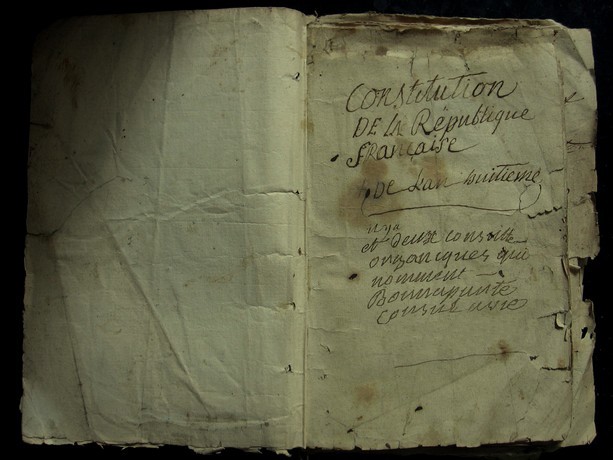 Constitution
DE la République
française
De Lan huitieme
il ya
et deux consulte
organiques qui
nomment
Bonnaparte
consul